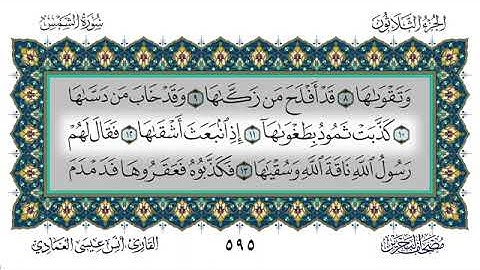 الجزء الثلاثون
سورة الشمس
وَتَقْوَىٰهَا ۝٨ قَدْ أَفْلَحَ مَن زَكَّىٰهَا ۝٩ وَقَدْ خَابَ مَن دَسَّىٰهَا
۝١٠ كَذَّبَتْ ثَمُودُ بِطَغْوَىٰهَآ ۝١١ إِذِ ٱنۢبَعَثَ أَشْقَىٰهَا ۝١٢ فَقَالَ لَهُمْ
رَسُولُ ٱللَّهِ نَاقَةَ ٱللَّهِ وَسُقْيَٰهَا ۝١٣ فَكَذَّبُوهُ فَعَقَرُوهَا فَدَمْدَمَ
مصحف البحرين
٥٩٥
القارئ أنس عيسى العمادي